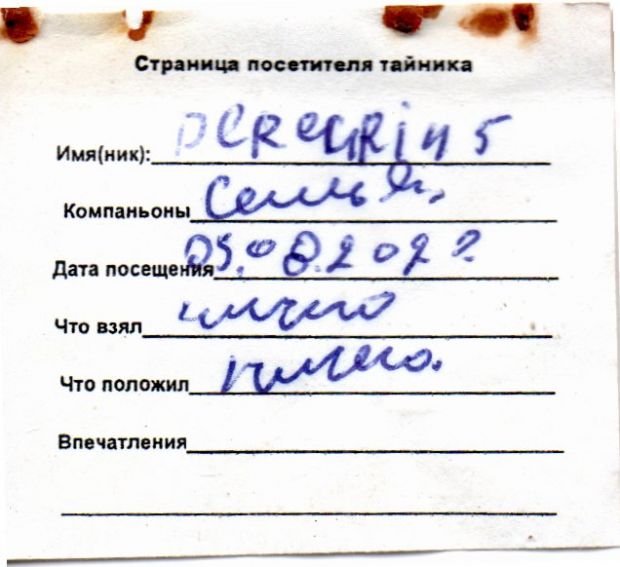 Страница посетителя тайника
Имя(ник): peregrin5
Компаньоны Семья.
Дата посещения 05.08.2022.
Что взял ничего
Что положил ничего.
Впечатления